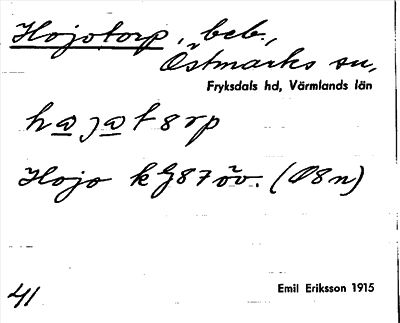 Hojotorp, beb.,
Östmarks sn,
Fryksdals hd, Värmlands län
hajat8rp
Hojo kG87öv. (Ø8n)
41 Emil Eriksson 1915